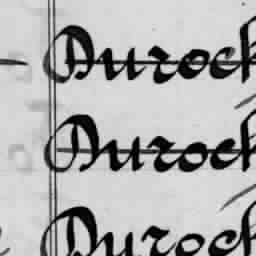 Durock
Durock
Durock